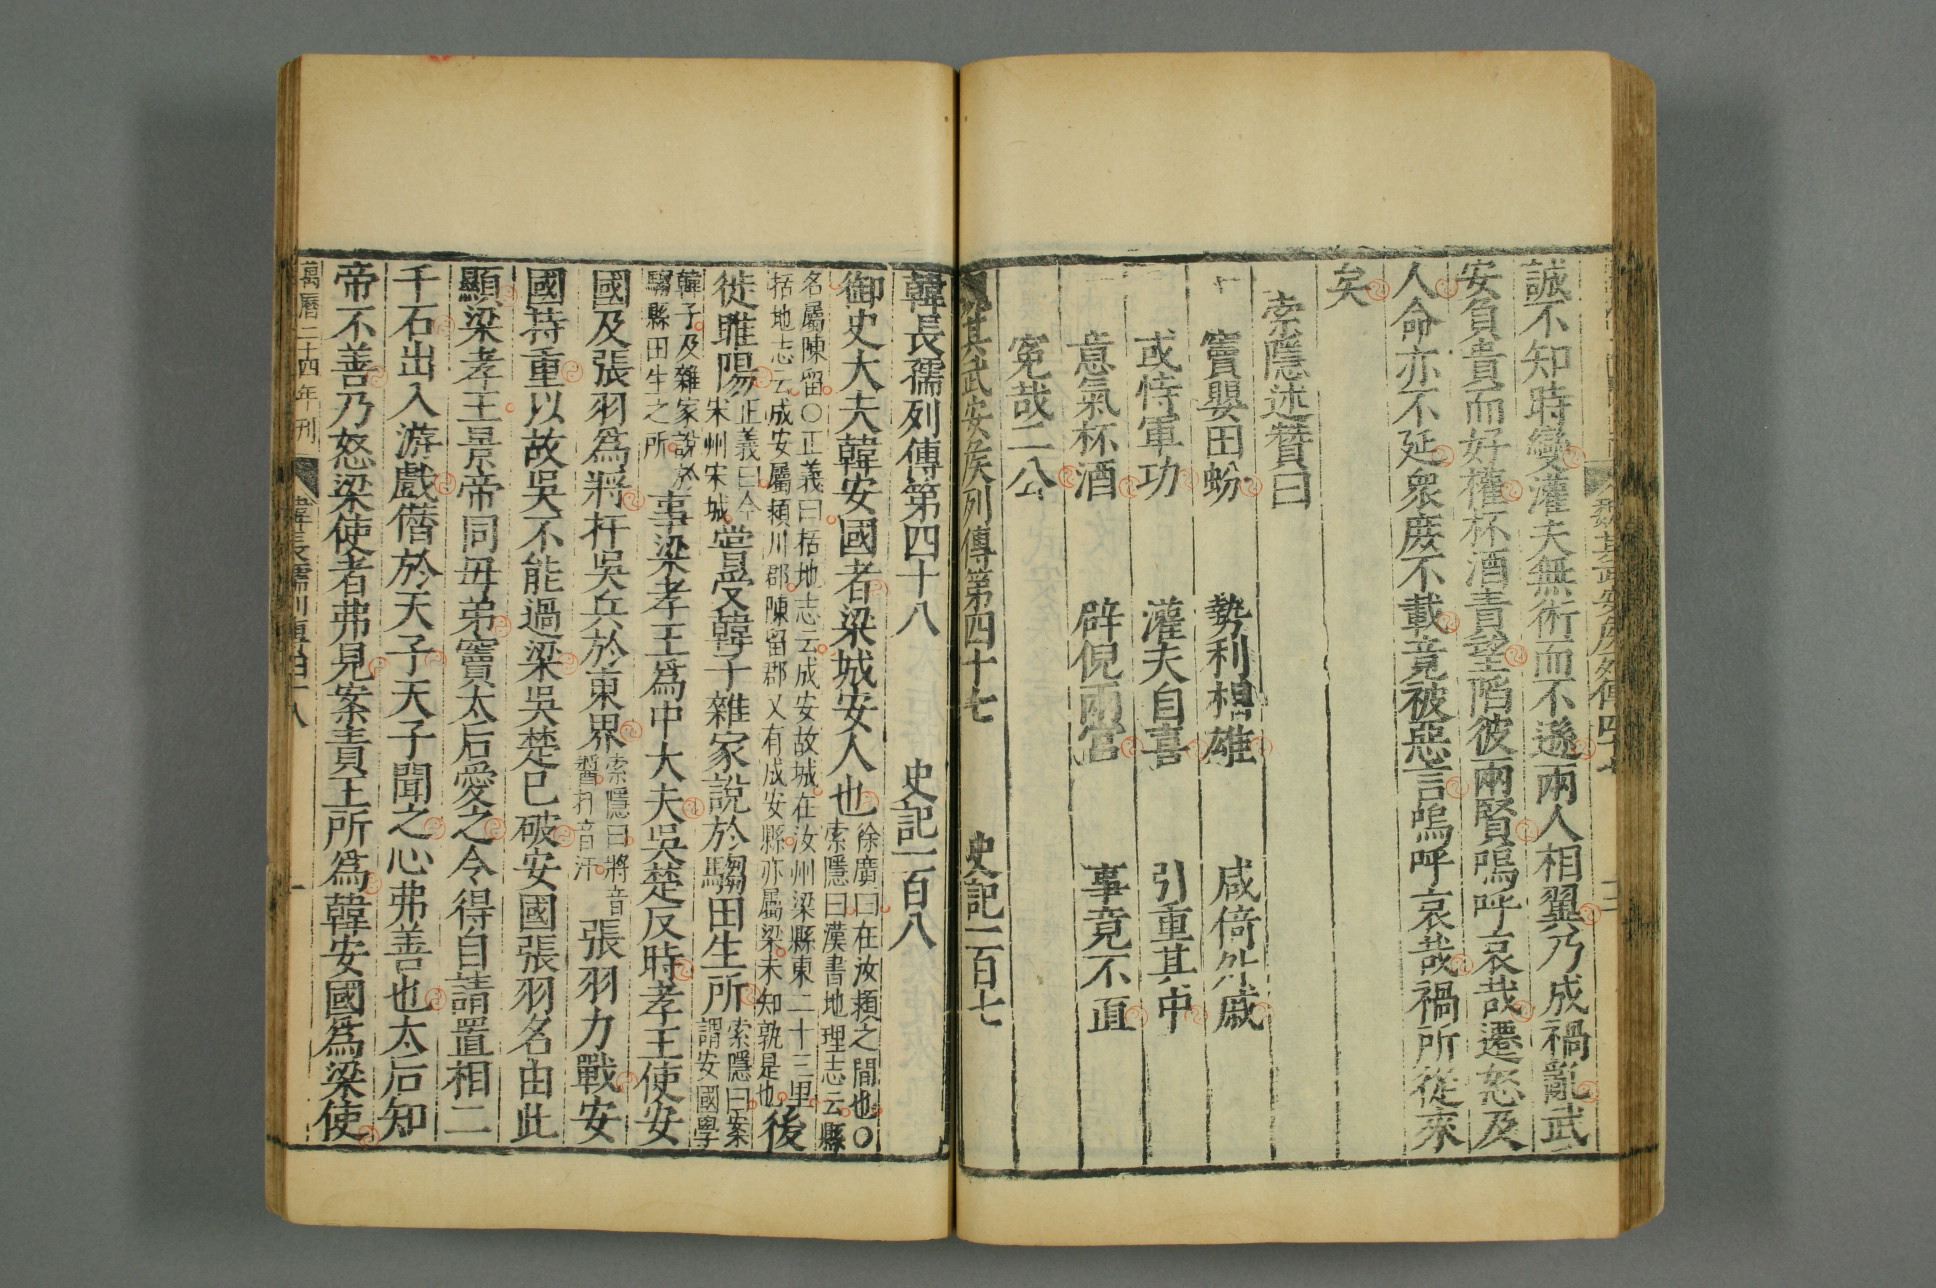 誠不知時變灌夫無術而不遜兩人相翼乃成禍亂武
安負貴而好權杯酒責望陷彼兩賢嗚呼哀哉遷怒及
人命亦不延衆庶不載竟被惡言嗚呼哀哉禍所從來
矣
索隱述贊曰
竇嬰田蚡 勢利相雄 咸倚外戚
或恃軍功 灌夫自喜 引重其中
意氣杯酒 辟倪兩宮 事竟不直
寃哉二公
其武安侯列傳第四十七 史記一百七
韓長孺列傳第四十八 史記一百八
御史大夫韓安國者梁城安人也
徐廣曰在汝潁之間也〇
索隱曰漢書地理志云縣
名屬陳留〇正義曰括地志云成安故城在汝州梁縣東二十三里
括地志云成安屬潁川郡陳留郡又有成安縣亦屬梁未知孰是也
後
徙睢陽
正義曰今
宋州宋城
嘗受韓子雜家說於騶田生所
索隱曰案
謂安國學
韓子及雜家說於
騶縣田生之所
事梁孝王爲中大夫吳楚反時孝王使安
國及張羽爲將扞吳兵於東界
索隱曰將音
醬扞音汗
張羽力戰安
國持重以故吳不能過梁吳楚已破安國張羽名由此
顯梁孝王景帝同母弟竇太后愛之令得自請置相二
千石出入游戲僭於天子天子聞之心弗善也太后知
帝不善乃怒梁使者弗見案責王所爲韓安國爲梁使
萬曆二十四年刊 韓長孺列傳四十八 一